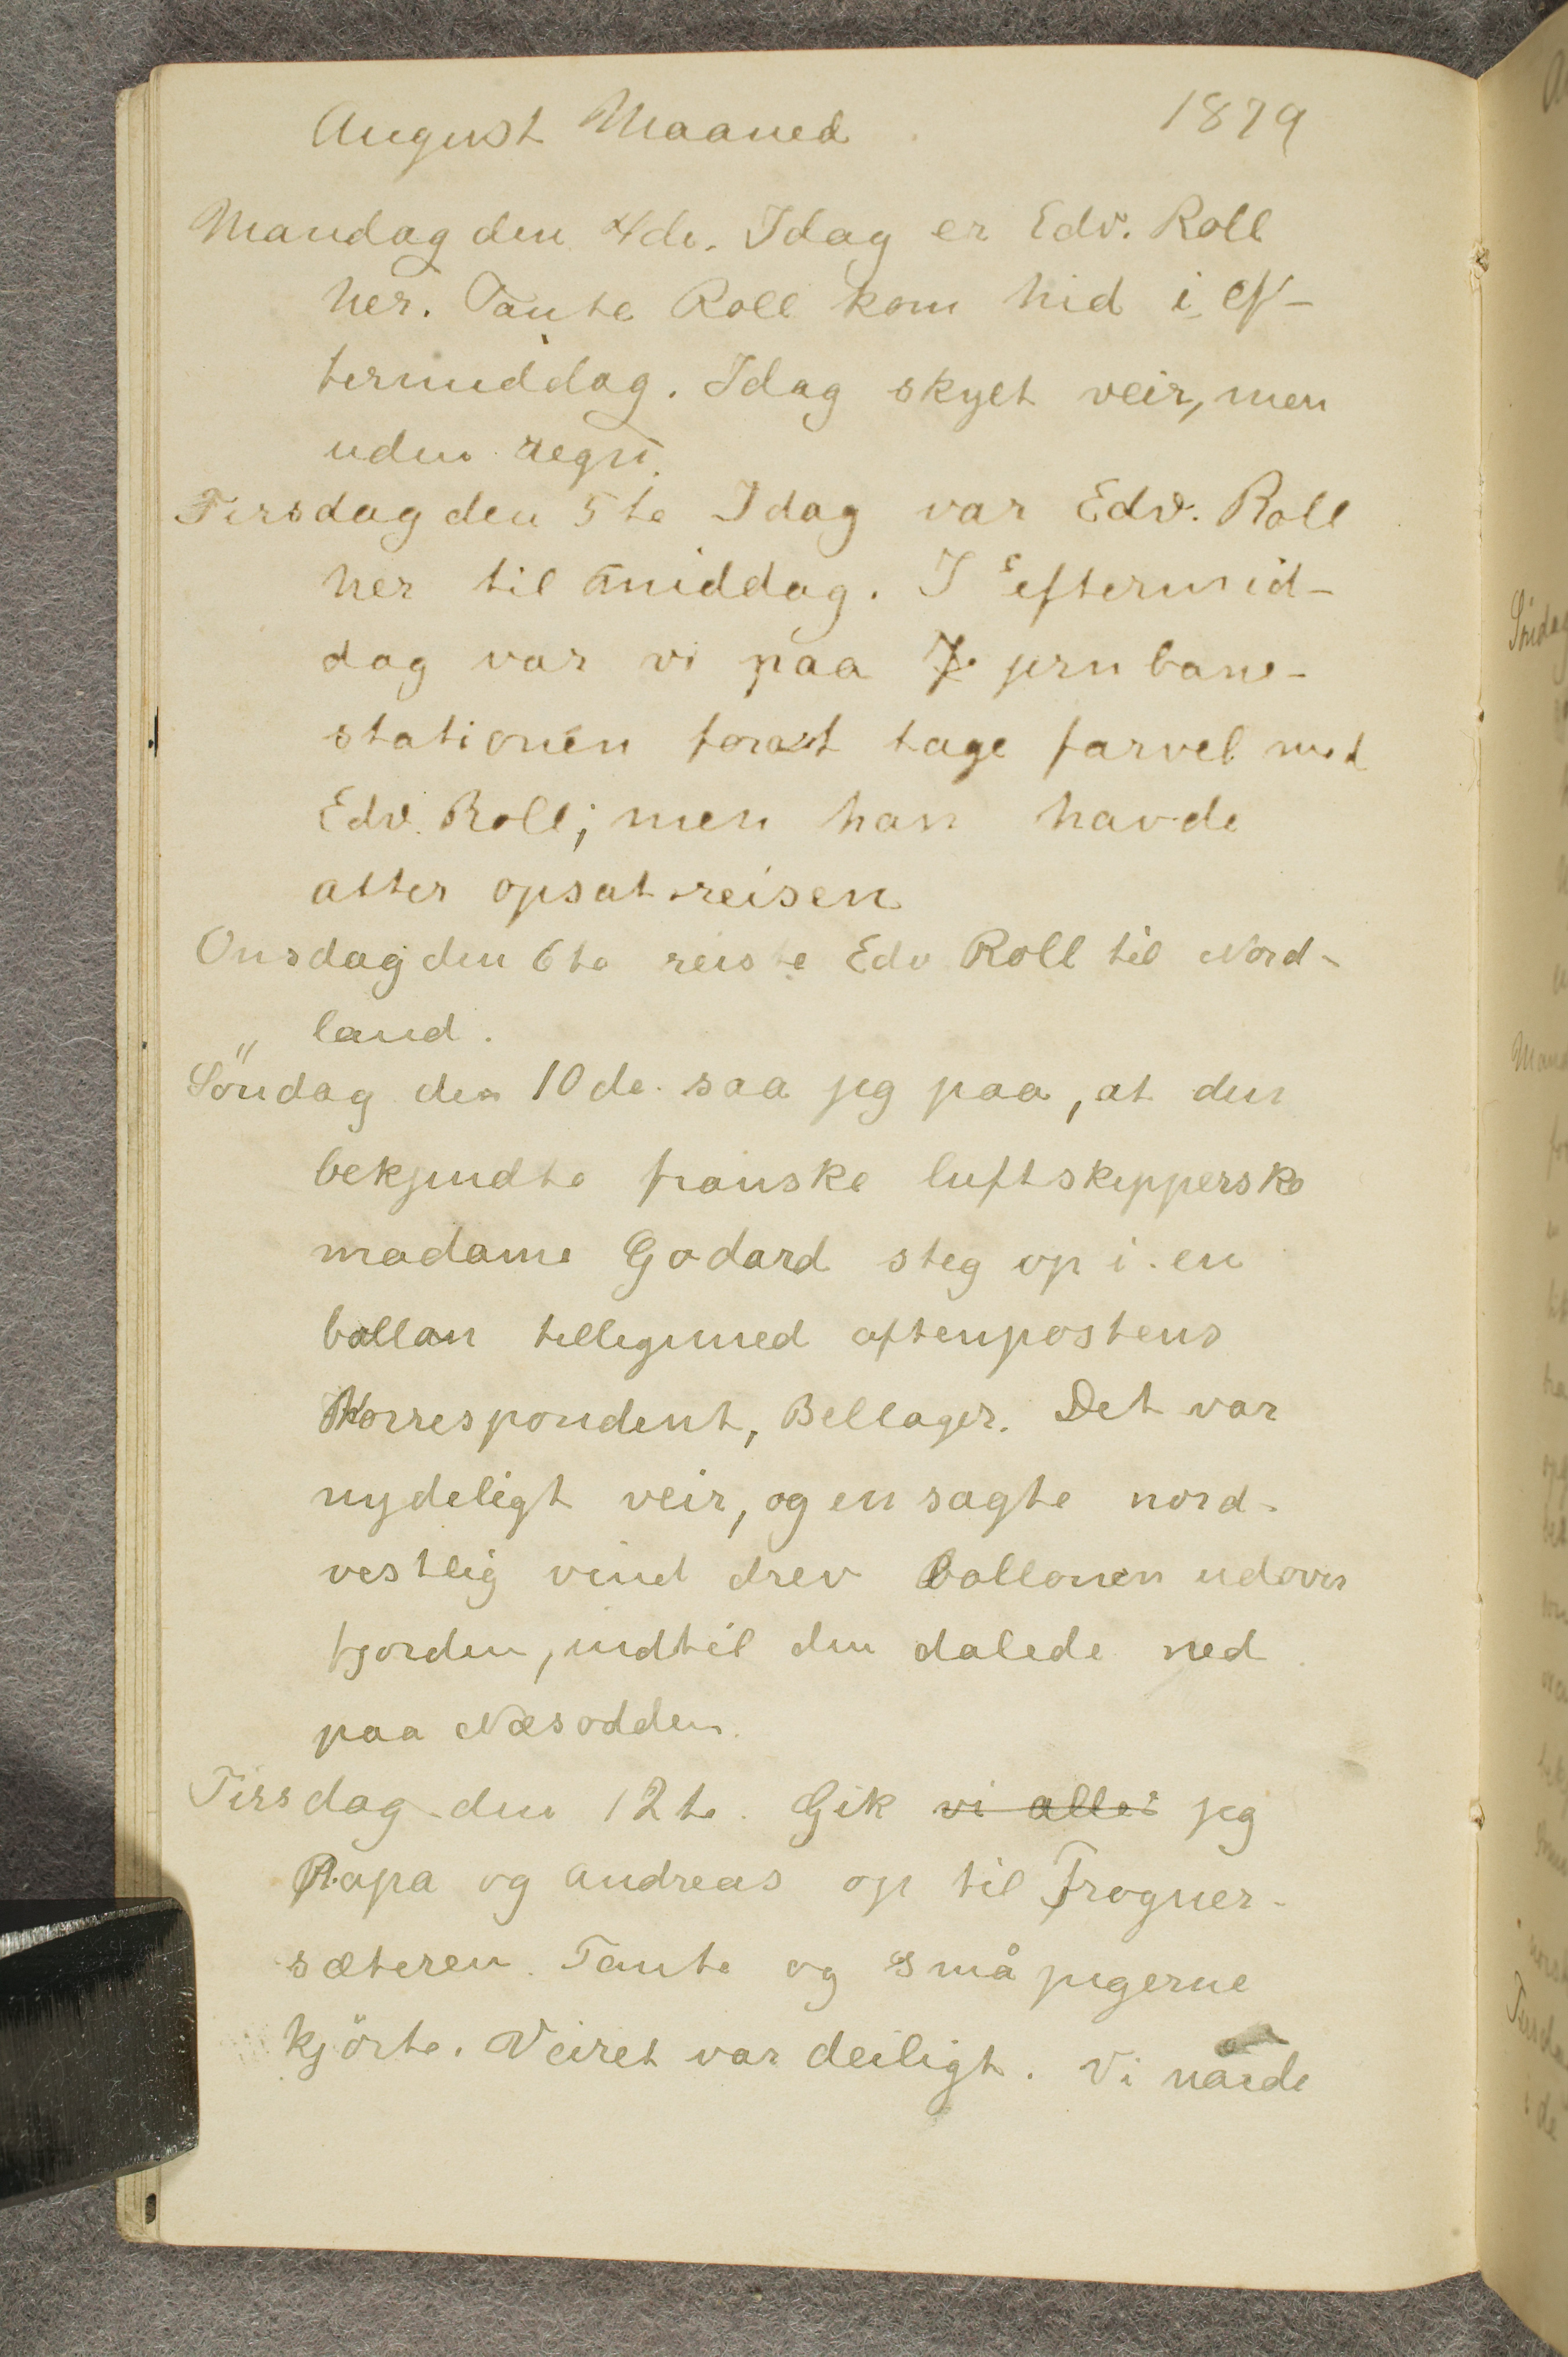 August Maaned 1879
Mandag den 4de. Idag er Edv. Roll
her. Tante Roll kom hid i ef-
termiddag. Idag skyet veir, men
uden regn.
Tirsdag den 5te Idag var Edv. Roll
her til middag. I eftermid-
dag var vi paa jernbane-
stationen forat tage farvel med
Edv. Roll; men han havde
atter opsat reisen
Onsdag den 6te reiste Edv Roll til Nord-
land.
Söndag den 10de. saa jeg paa, at den
bekjendte franske luftskipperske
madame Godard steg op i en
ballon tilligemed aftenpostens
Korrespondent, Bellager. Det var
nydeligt veir, og en sagte nord-
vestlig vind drev ballonen udover
fjorden, indtil den dalede ned
paa Næsodden.
Tirsdag den 12te. Gik vi alle jeg
Papa og Andreas op til Frogner-
sæteren. Tante og småpigerne
kjörte. Veiret var deiligt. Vi